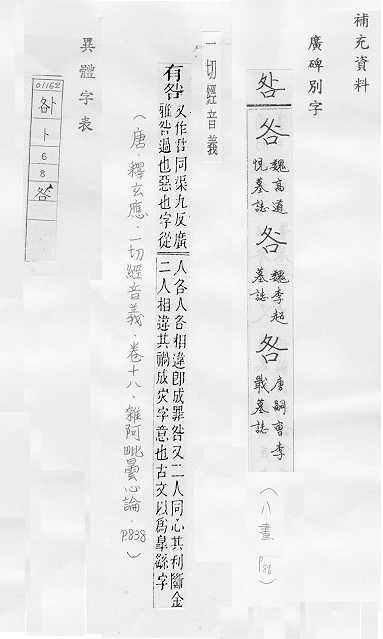 補充資料
廣碑別字
咎
咎
魏高道
悅墓誌
咎
魏李超
墓誌
咎
唐嗣曹李
戢墓誌
(八畫 P86)
一切經音義
有咎
又作 同渠九反廣
雅咎過也惡也字從
人各人各相違即成罪咎又二人同心其利斷金
二人相違其禍成灾字意也古文以為皐繇字
(唐.釋玄應.一切經音義.卷十八.雜阿毗曇心論.P.838)
異體字表
01162
卜
6
8
咎